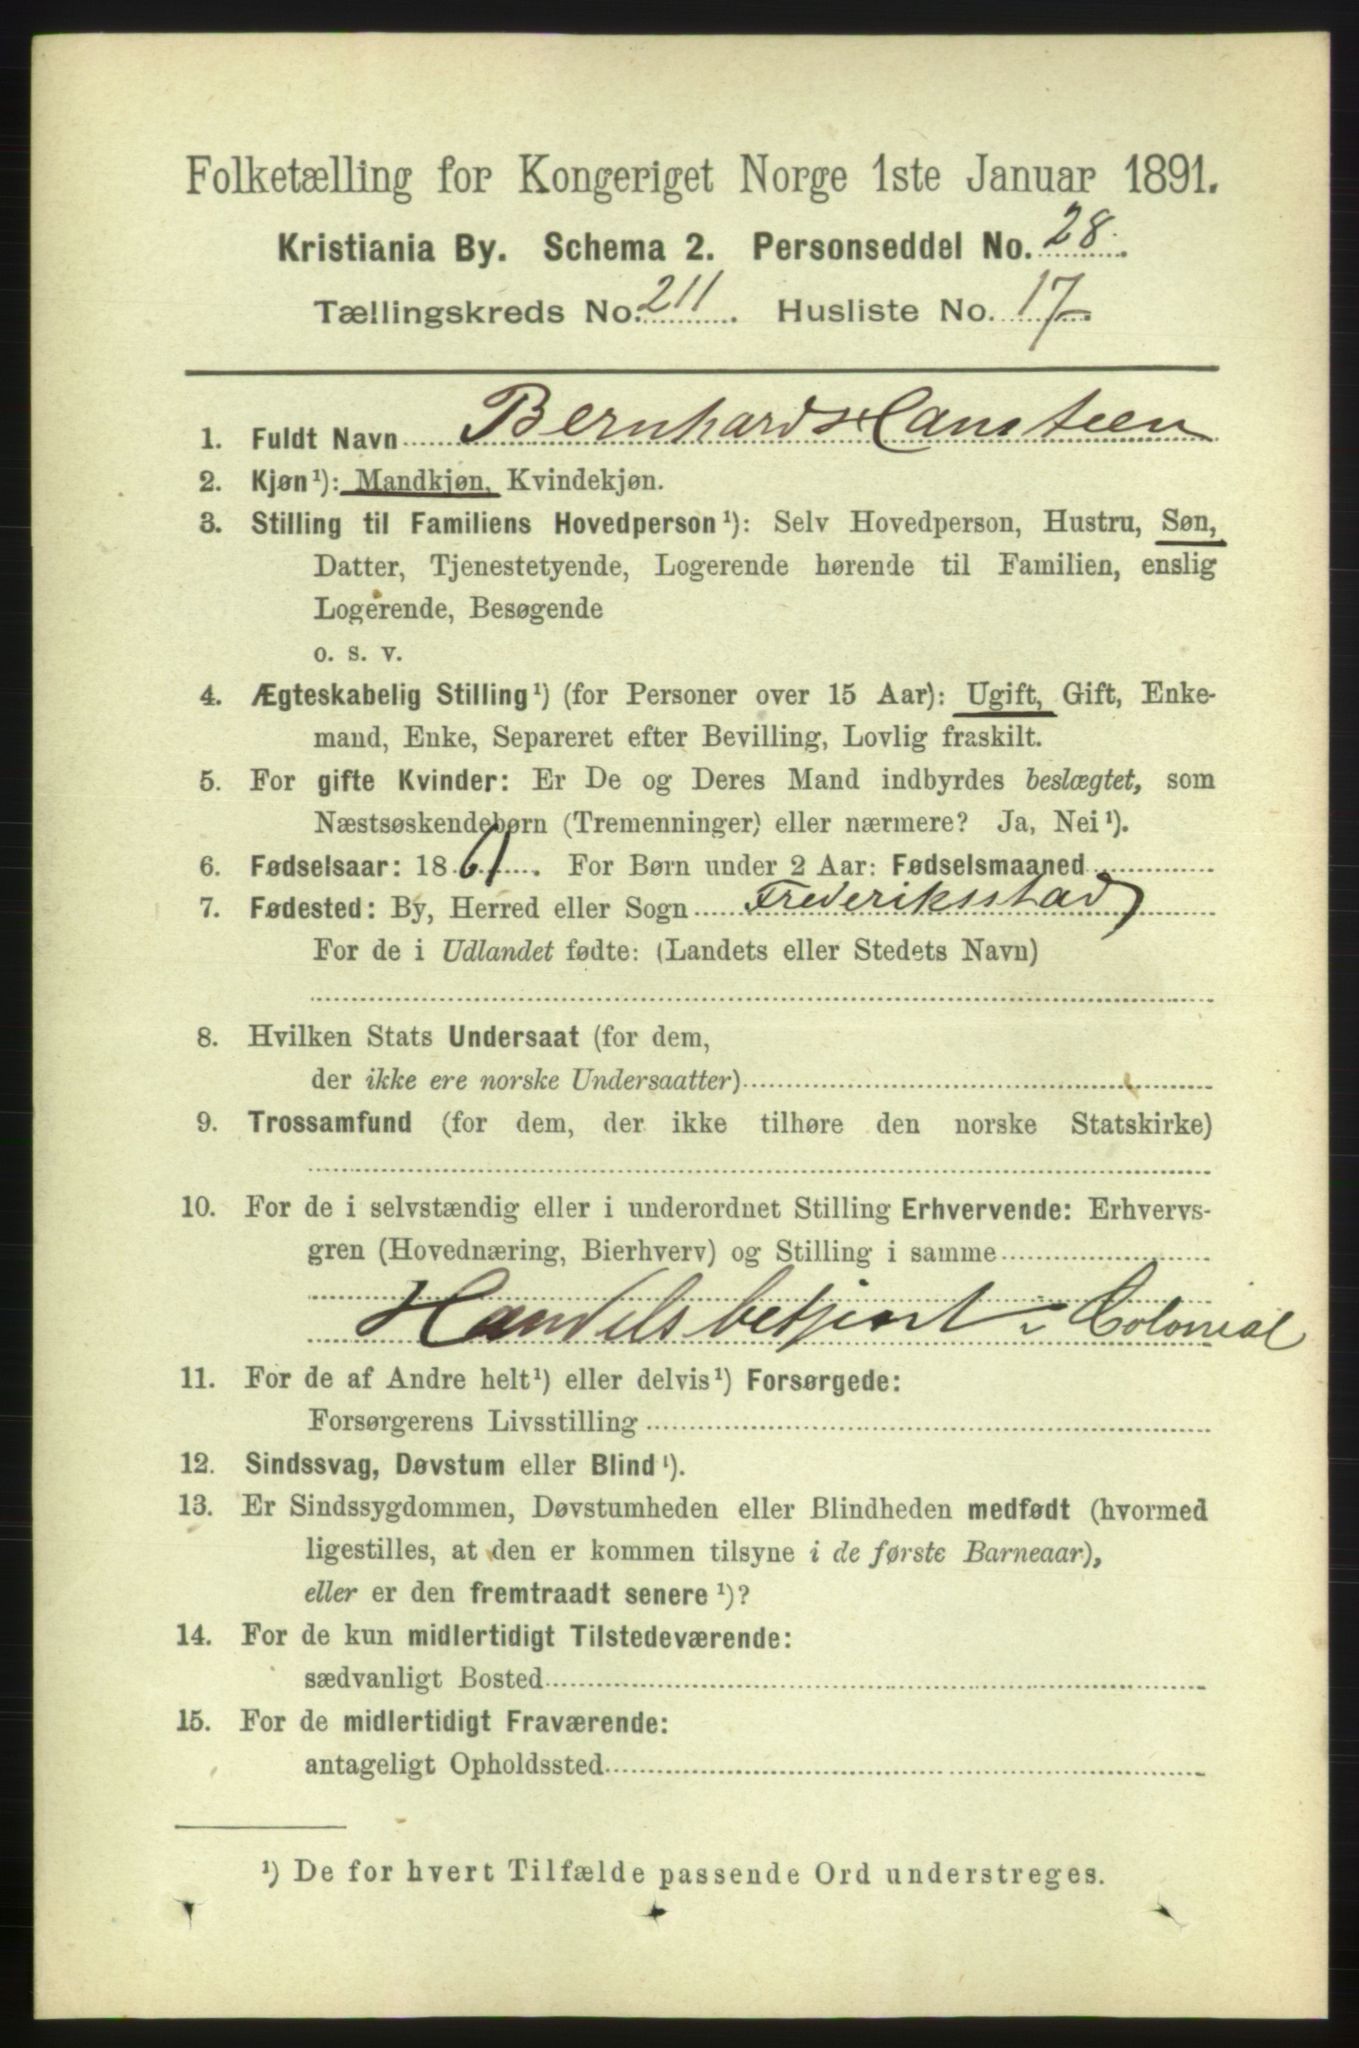 Folketælling for Kongeriget Norge 1ste Januar 1891.
Kristiania By. Schema 2. Personseddel No. 28.
Tællingskreds No. 211. Husliste No. 17.
1. Fuldt Navn Bernhard Hansteen
2. Kjøn¹): Mandkjøn, Kvindekjøn.
3. Stilling til Familiens Hovedperson¹): Selv Hovedperson, Hustru, Søn,
Datter, Tjenestetyende, Logerende hørende til Familien, enslig
Logerende, Besøgende
o. s. v.
4. Ægteskabelig Stilling¹) (for Personer over 15 Aar): Ugift, Gift, Enke-
mand, Enke, Separeret efter Bevilling, Lovlig fraskilt.
5. For gifte Kvinder: Er De og Deres Mand indbyrdes beslægtet, som
Næstsøskendebørn (Tremenninger) eller nærmere? Ja, Nei¹).
6. Fødselsaar: 1861. For Børn under 2 Aar: Fødselsmaaned
7. Fødested: By, Herred eller Sogn Frederiksstad
For de i Udlandet fødte: (Landets eller Stedets Navn)
8. Hvilken Stats Undersaat (for dem,
der ikke ere norske Undersaatter)
9. Trossamfund (for dem, der ikke tilhøre den norske Statskirke)
10. For de i selvstændig eller i underordnet Stilling Erhvervende: Erhvervs-
gren (Hovednæring, Bierhverv) og Stilling i samme
Handelsbetjent i Colonial
11. For de af Andre helt¹) eller delvis¹) Forsørgede:
Forsørgerens Livsstilling
12. Sindssvag, Døvstum eller Blind¹).
13. Er Sindssygdommen, Døvstumheden eller Blindheden medfødt (hvormed
ligestilles, at den er kommen tilsyne i de første Barneaar),
eller er den fremtraadt senere¹)?
14. For de kun midlertidigt Tilstedeværende:
sædvanligt Bosted
15. For de midlertidigt Fraværende:
antageligt Opholdssted
¹) De for hvert Tilfælde passende Ord understreges.